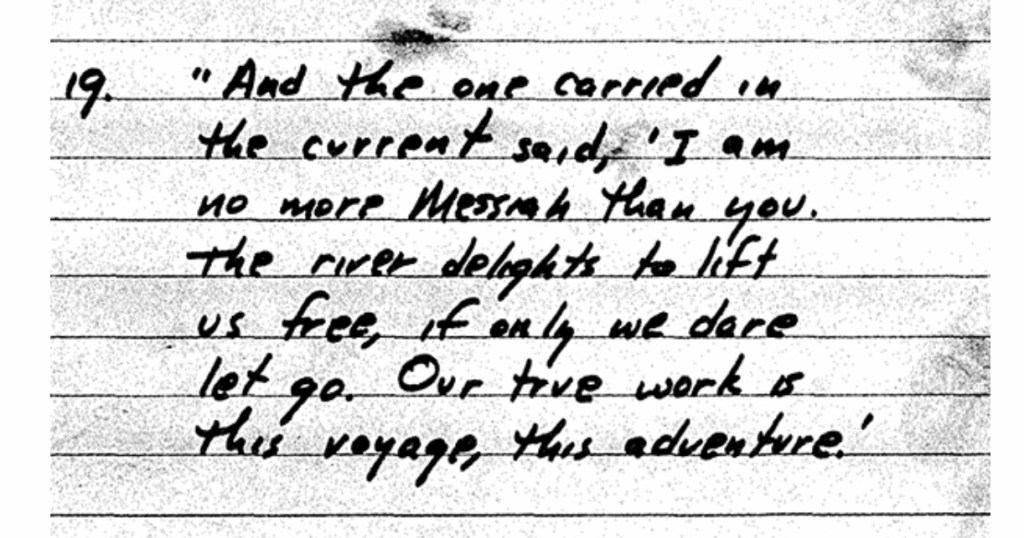 19. "And the one carried in
the current said, 'I am
no more Messiah than you.
The river delights to lift
us free, if only we dare
let go. Our true work is
this voyage, this adventure.'